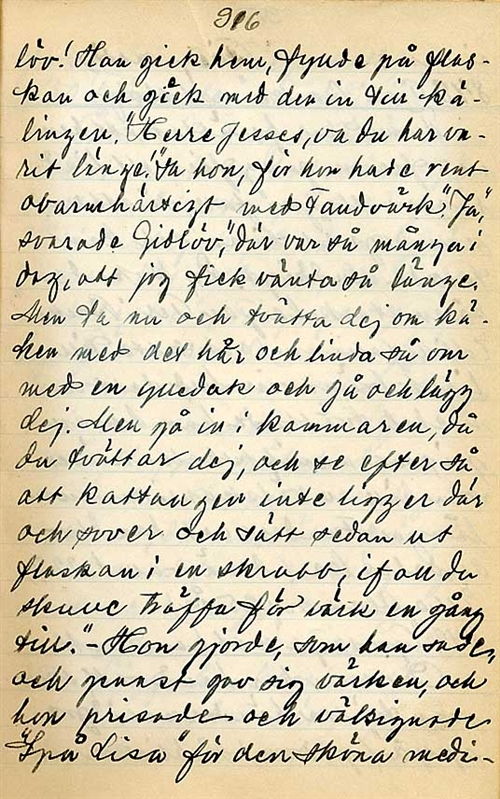 916
löv! Han gick hem, fyllde på flas-
kan och gick med den in till kä-
lingen. "Herre Jesses, va du har va-
rit länge!" sa hon, för hon hade rent
obarmhärtigt med tandvärk. "Ja,"
svarade Gidlöv, "där var så många i
dag, att jag fick vänta så länge.
Men ta nu och tvätta dej om kä-
ken med det här och linda så om
med en ylleduk och gå och lägg
dej. Men gå in i kammaren, då
du tvättar dej, och se efter så
att kattan gen inte ligger där
och sover och sätt sedan ut
flaskan i en skrubb, ifall du
skulle träffa för värk en gång
till." - Hon gjorde, som han sade,
och genast gav sig värken, och
hon prisade och välsignade
"Spå Lisa" för den sköna medi-